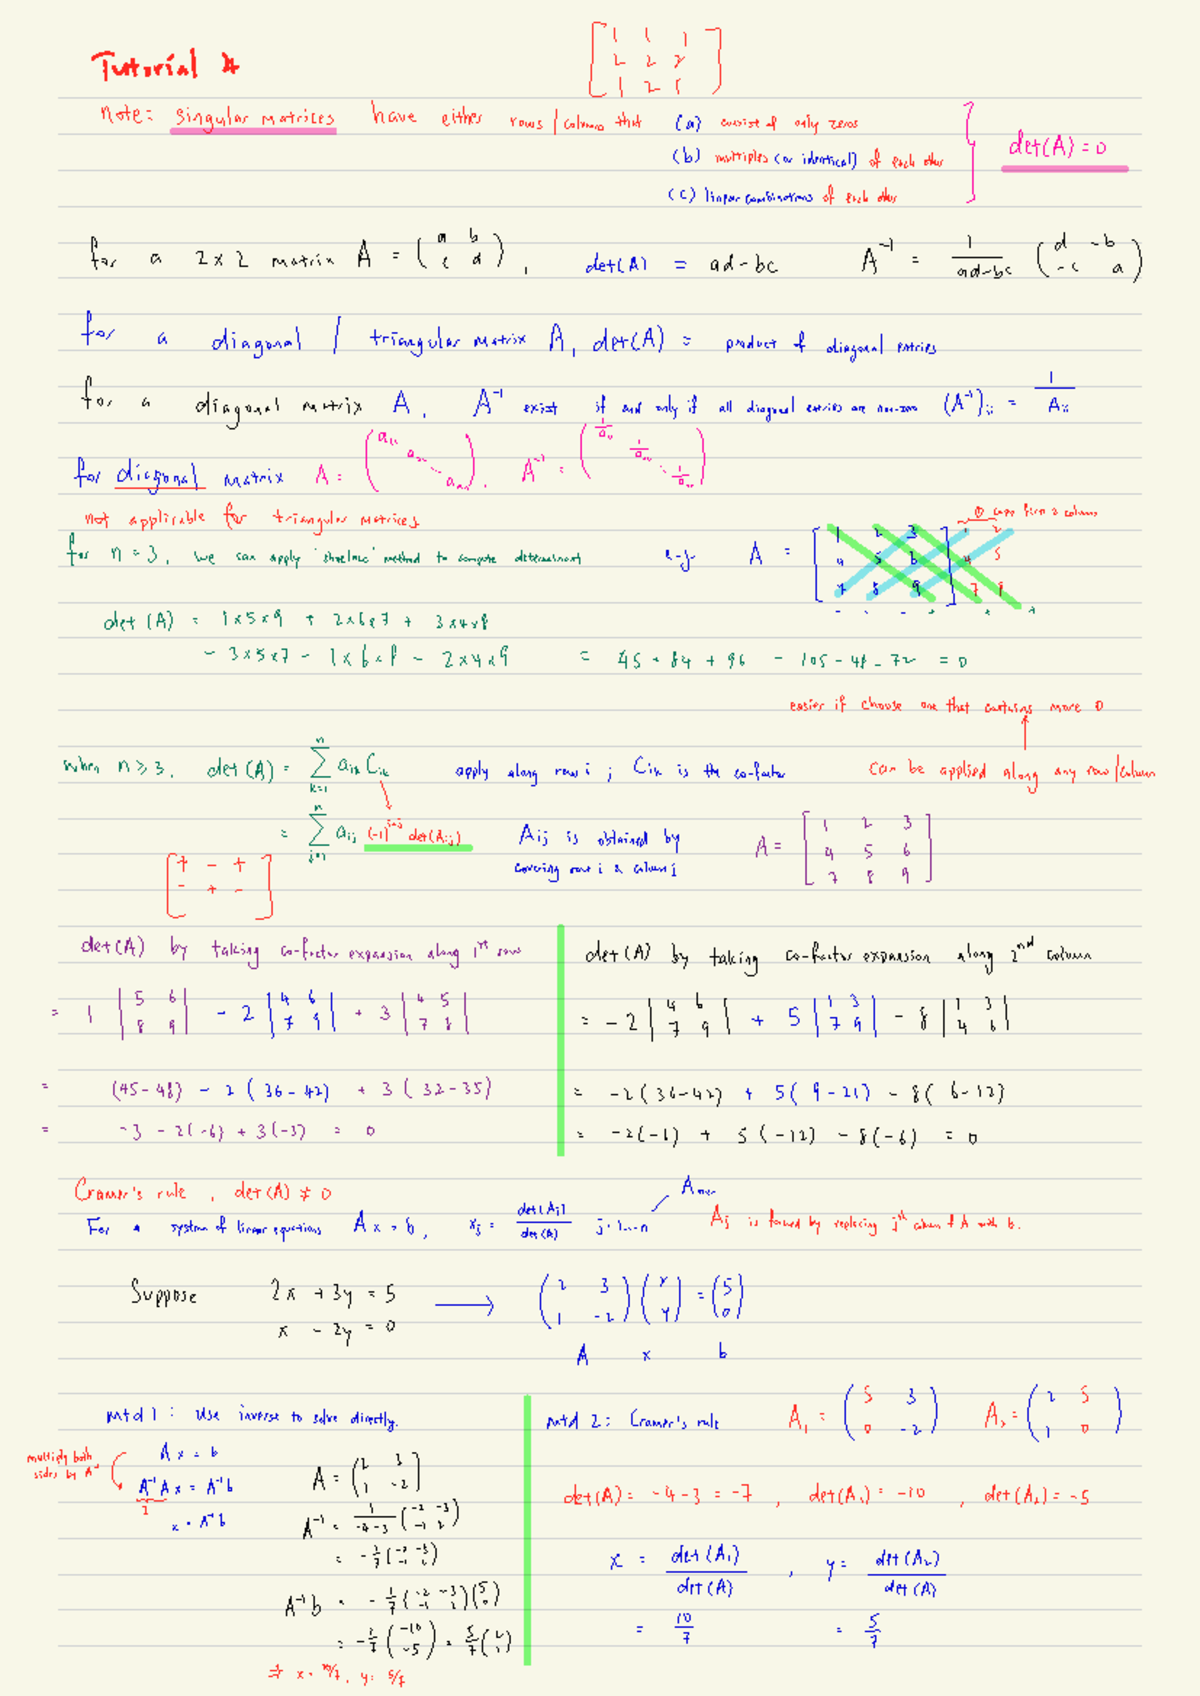 Tutorial 4
[1 1 1
2 2 2
1 2 1]
note: singular matrices have either rows / columns that (a) consist of only zeros
(b) multiples (or identical) of each other
(c) linear combinations of each other
det(A) = 0
for a 2×2 matrix A = (a b
c d), det(A) = ad-bc A⁻¹ = 1/(ad-bc) (d -b
-c a)
for a diagonal / triangular matrix A, det(A) = product of diagonal entries
for a diagonal matrix A, A⁻¹ exist if and only if all diagonal entries are non-zero (A⁻¹)ii = 1/Aii
for diagonal matrix A = (a₁₁ a₂₂ ⋱ aₙₙ), A⁻¹ = (1/a₁₁ 1/a₂₂ ⋱ 1/aₙₙ)
not applicable for triangular matrices
① copy first 2 column
for n = 3, we can apply 'shoelace' method to compute determinant e.g. A =
[1 2 3] 1 2
[4 5 6] 4 5
[7 8 9] 7 8
- - - + + +
det(A) = 1×5×9 + 2×6×7 + 3×4×8
- 3×5×7 - 1×6×8 - 2×4×9 = 45 + 84 + 96 - 105 - 48 - 72 = 0
easier if choose one that contains more 0
when n ≥ 3, det(A) = Σ(k=1 to n) aik Cik apply along row i ; Cik is the co-factor can be applied along any row/column
= Σ(j=1 to n) aij (-1)^(i+j) det(Aij) Aij is obtained by
covering row i & column j
A = [1 2 3
4 5 6
7 8 9]
[+ - +
- + -]
det(A) by taking co-factor expansion along 1st row
= 1 |5 6; 8 9| - 2 |4 6; 7 9| + 3 |4 5; 7 8|
= (45-48) - 2(36-42) + 3(32-35)
= -3 - 2(-6) + 3(-3) = 0
det(A) by taking co-factor expansion along 2nd column
= -2 |4 6; 7 9| + 5 |1 3; 7 9| - 8 |1 3; 4 6|
= -2(36-42) + 5(9-21) - 8(6-12)
= -2(-6) + 5(-12) - 8(-6) = 0
Cramer's rule, det(A) ≠ 0
For a system of linear equations Ax = b, xj = det(Aj)/det(A) j = 1...n Aj is found by replacing jth column of A with b.
Suppose 2x + 3y = 5 → (2 3; 1 -2)(x; y) = (5; 0)
x - 2y = 0
A x b
mtd 1: Use inverse to solve directly.
Ax = b
multiply both
sides by A⁻¹
A⁻¹Ax = A⁻¹b
I
x = A⁻¹b
A = (2 3; 1 -2)
A⁻¹ = 1/(-4-3) (-2 -3; -1 2)
= -1/7 (-2 -3; -1 2)
A⁻¹b = -1/7 (-2 -3; -1 2)(5; 0)
= -1/7 (-10; -5) = 5/7 (2; 1)
⇒ x = 10/7, y = 5/7
mtd 2: Cramer's rule A₁ = (5 3; 0 -2) A₂ = (2 5; 1 0)
det(A) = -4-3 = -7, det(A₁) = -10, det(A₂) = -5
x = det(A₁)/det(A), y = det(A₂)/det(A)
= 10/7 = 5/7